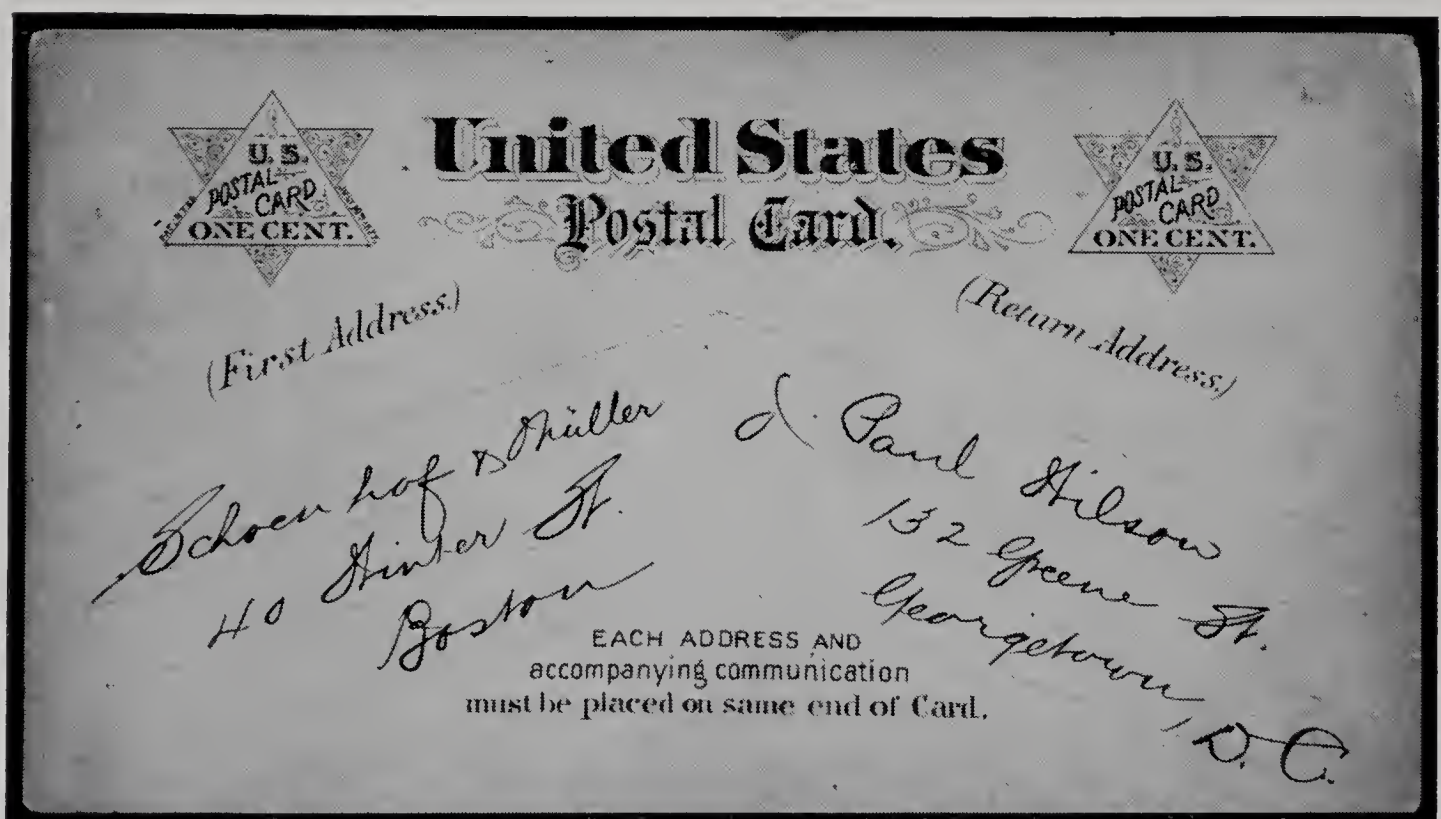 U. S.
POSTAL
CARD
ONE CENT.
United States
Postal Card.
U. S.
POSTAL
CARD
ONE CENT.
(First Address.)
(Return Address.)
Schoenhof & Müller
40 Winter St.
Boston
Paul Wilson
132 Greene St.
Georgetown, D. C.
EACH ADDRESS AND
accompanying communication
must be placed on same end of Card.